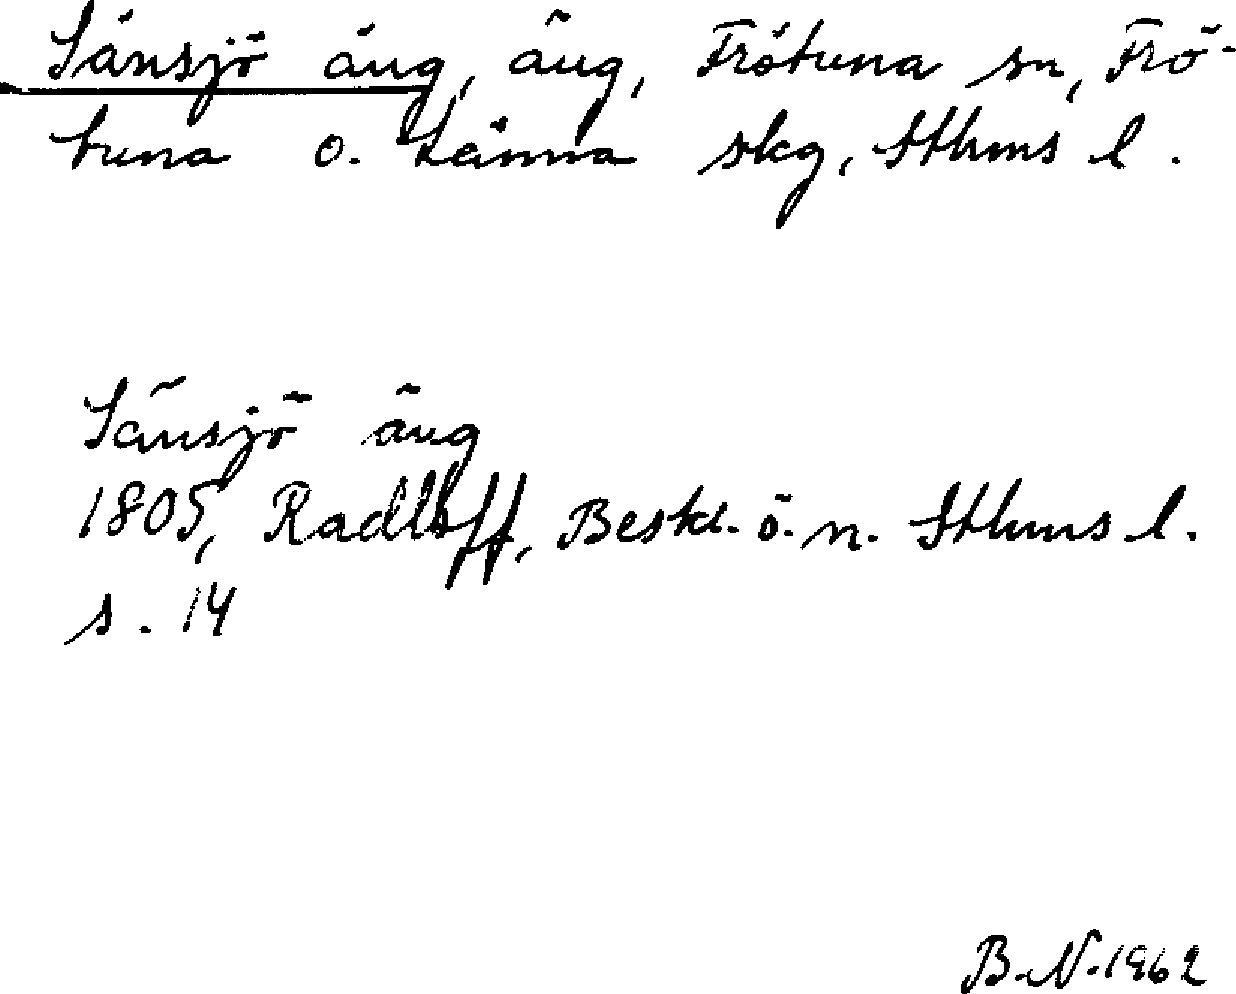 Sänsjö äng, äng, Frötuna sn, Frö-
tuna o. Länna skg, Sthms l.
Sänsjö äng
1805, Radloff, Beskr. ö. n. Sthms l.
s. 14
B.N. 1962